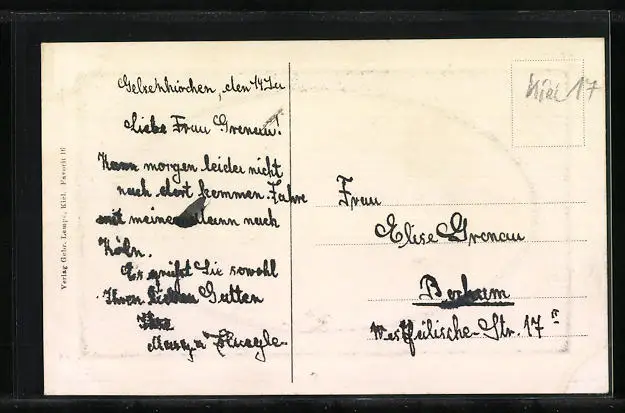 Verlag Gebr. Lempe, Kiel. Favorit 16
Gelsenkirchen, den
Liebe Frau Grenau!
Kann morgen leider nicht
nach dort kommen. Fahre
mit meinem Mann nach
Köln.
Es grüßt Sie sowohl
Ihren lieben Gatten
Ihre
Kiel 17
Frau
Elise Grenau
Bochum
Westfälische-Str. 17